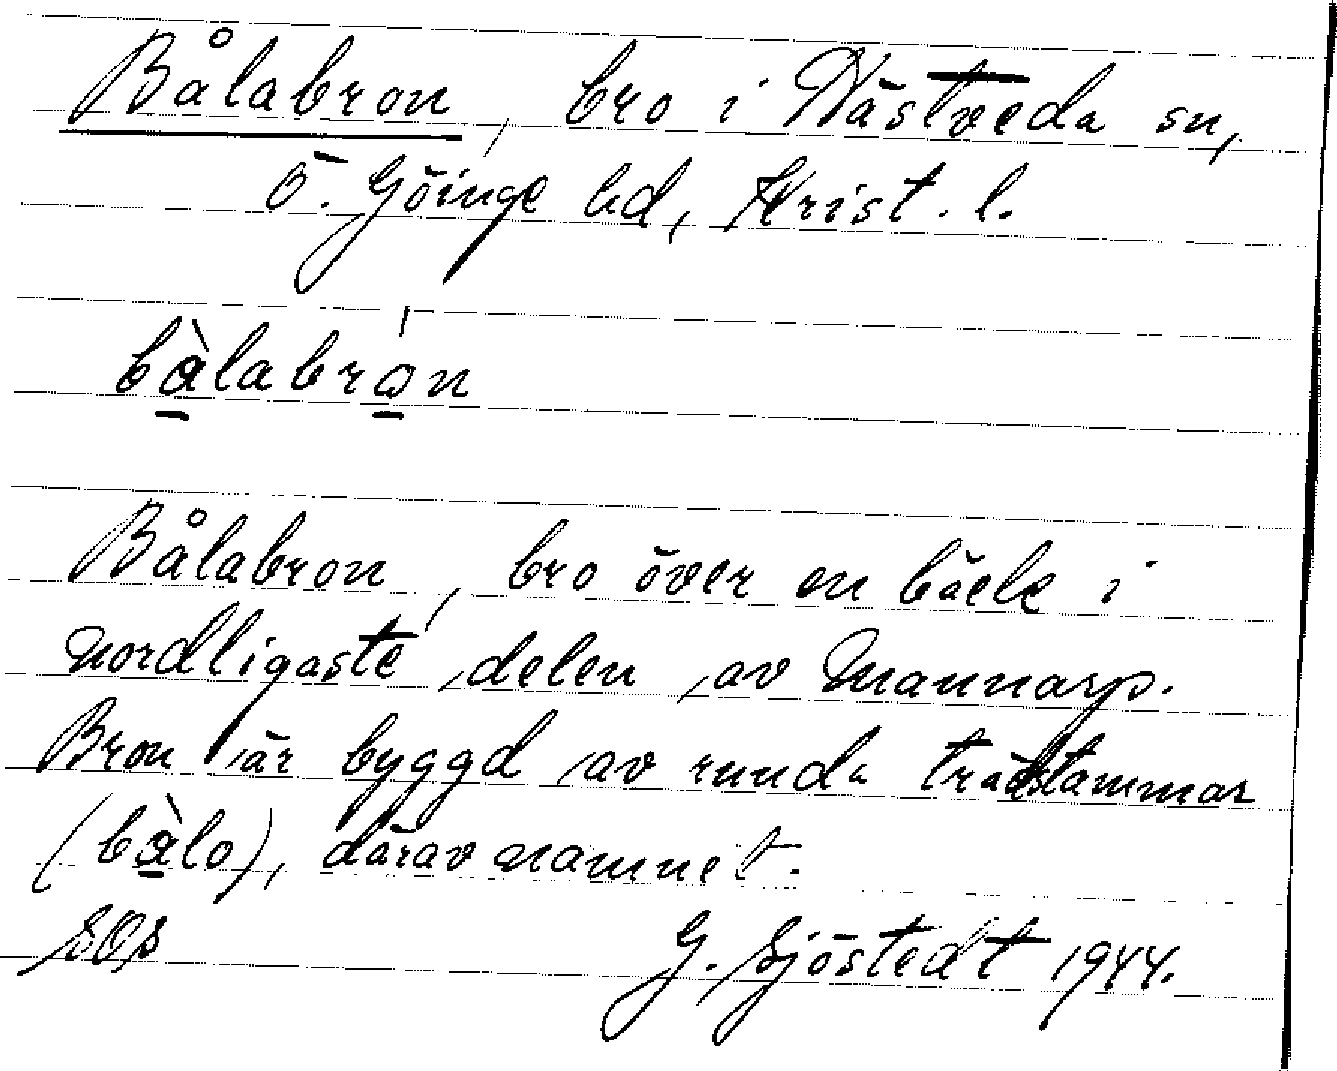 Bålabron, bro i Nästveda sn,
Ö. Göinge hd, Krist. l.
bàlabrón
Bålabron, bro över en bäck i
nordligaste delen av Mannarp.
Bron är byggd av runda trädstammar
(bàlo), därav namnet.
SOs
G. Sjöstedt 1944.